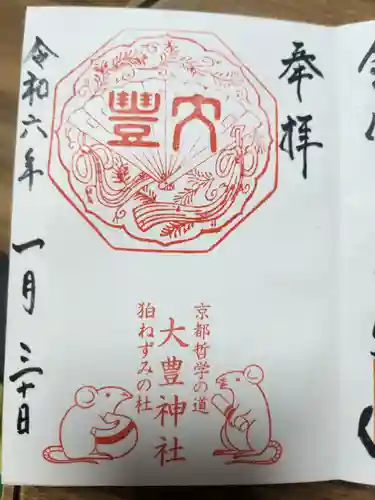 奉拝
大豊
令和六年
一月三十日
京都哲学の道
大豊神社
狛ねずみの社